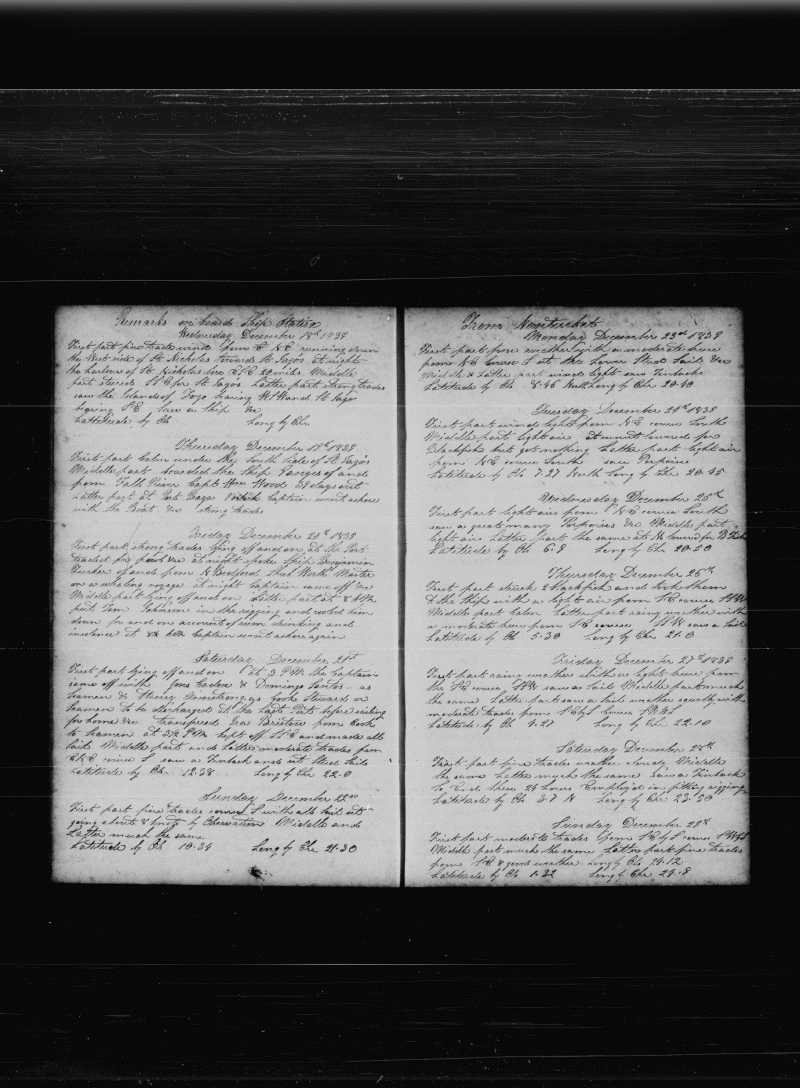 Remarks on board Ship Statira
Wednesday December 18th 1839
First part fine trade wind from E N E running down
the West side of St Nicholas towards St Jago's at night
the harbour of St Nicholas bore E S E 22 miles Middle
part steered S S E for St Jago's Latter part strong trades
saw the Island of Fogo bearing W S W and St Jago
bearing S E saw a ship &c
Lattitude by Ob Long by Chr
Thursday December 19th 1839
First part Calm under the South side of St Jago's
Middle part boarded the ship Ganges of and
from Fall's River Capt Wood days out
Latter part at Port Praya Captain went ashore
with the Boat &c strong trades
Friday December 20th 1839
First part strong trades lying off and on at the Port
traded for at night spoke Ship Benjamin
Tucker of and from N Bedford Worth Master
on a whaling voyage at night captain came off &c
Middle part lying off and on Latter part at 8 AM
put Tom Johnson in the rigging and roped him
down for and on account of rum drinking and
insolence at 8½ AM Captain went ashore again
Saturday December 21st
First part lying off and on at 3 PM the Captain
came off with Jous and Domingo Santos as
Seamen & Henry Armstrong as Cook Steward or
Seamen to be discharged at the last Port before sailing
for home &c transferred Geo Bristow from Cook
to Seamen at 3½ PM kept off S S E and made all
Sail Middle part and Latter moderate trades from
E N E course S saw a Finback and set Steed Sails
Latitude by Ob 12.38 Long by Chr 22.0
Sunday December 22nd
First part fine trades course S with all sail set
going about 8 knots by Observation Middle and
Latter much the same
Latitude by Ob 10.34 Long by Chr 21.30
From Nantucket
Monday December 23rd 1839
First part pore weather with a moderate breeze
from N E course S set the lower Steed Sails &c
Middle & Latter part wind light saw finbacks
Latitude by Ob 8.46 North Long by Chr 20.40
Tuesday December 24th 1839
First part wind light from N E course South
Middle part light air at sunset lowered for
Blackfish but got nothing Latter part light air
from N E course South saw Porpoises
Latitude by Ob 7.27 North Long by Chr 20.45
Wednesday December 25th
First part light airs from N E course South
saw a great many Porpoises &c Middle part
light airs Latter part the same at lowered for B Fish
Latitude by Ob 6.8 Long by Chr 20.50
Thursday December 26th
First part struck 2 blackfish and took them
to the ship with a light air from S E course S W
Middle part Calm Latter part rainy weather with
a moderate breeze from S E course S W saw a Sail
Latitude by Ob 5.30 Long by Chr 21.0
Friday December 27th 1839
First part rainy weather with a light breeze from
the S E course S W saw a Sail Middle part much
the same Latter part saw a Sail weather squally with
moderate trades from S E by S course S W by S
Latitude by Ob 4.27 Long by Chr 22.10
Saturday December 28th
First part fine trades weather cloudy Middle
the same Latter much the same saw a Finback
So Ends these 24 hours Employed in fitting rigging
Latitude by Ob 3.7 N Long by Chr 23.50
Sunday December 29th
First part moderate trades from S E by S course S W by S
Middle part much the same Latter part fine trades
from S E & good weather Long by Ch 24.12
Latitude by Ob 1.32 Long by Chr 24.8